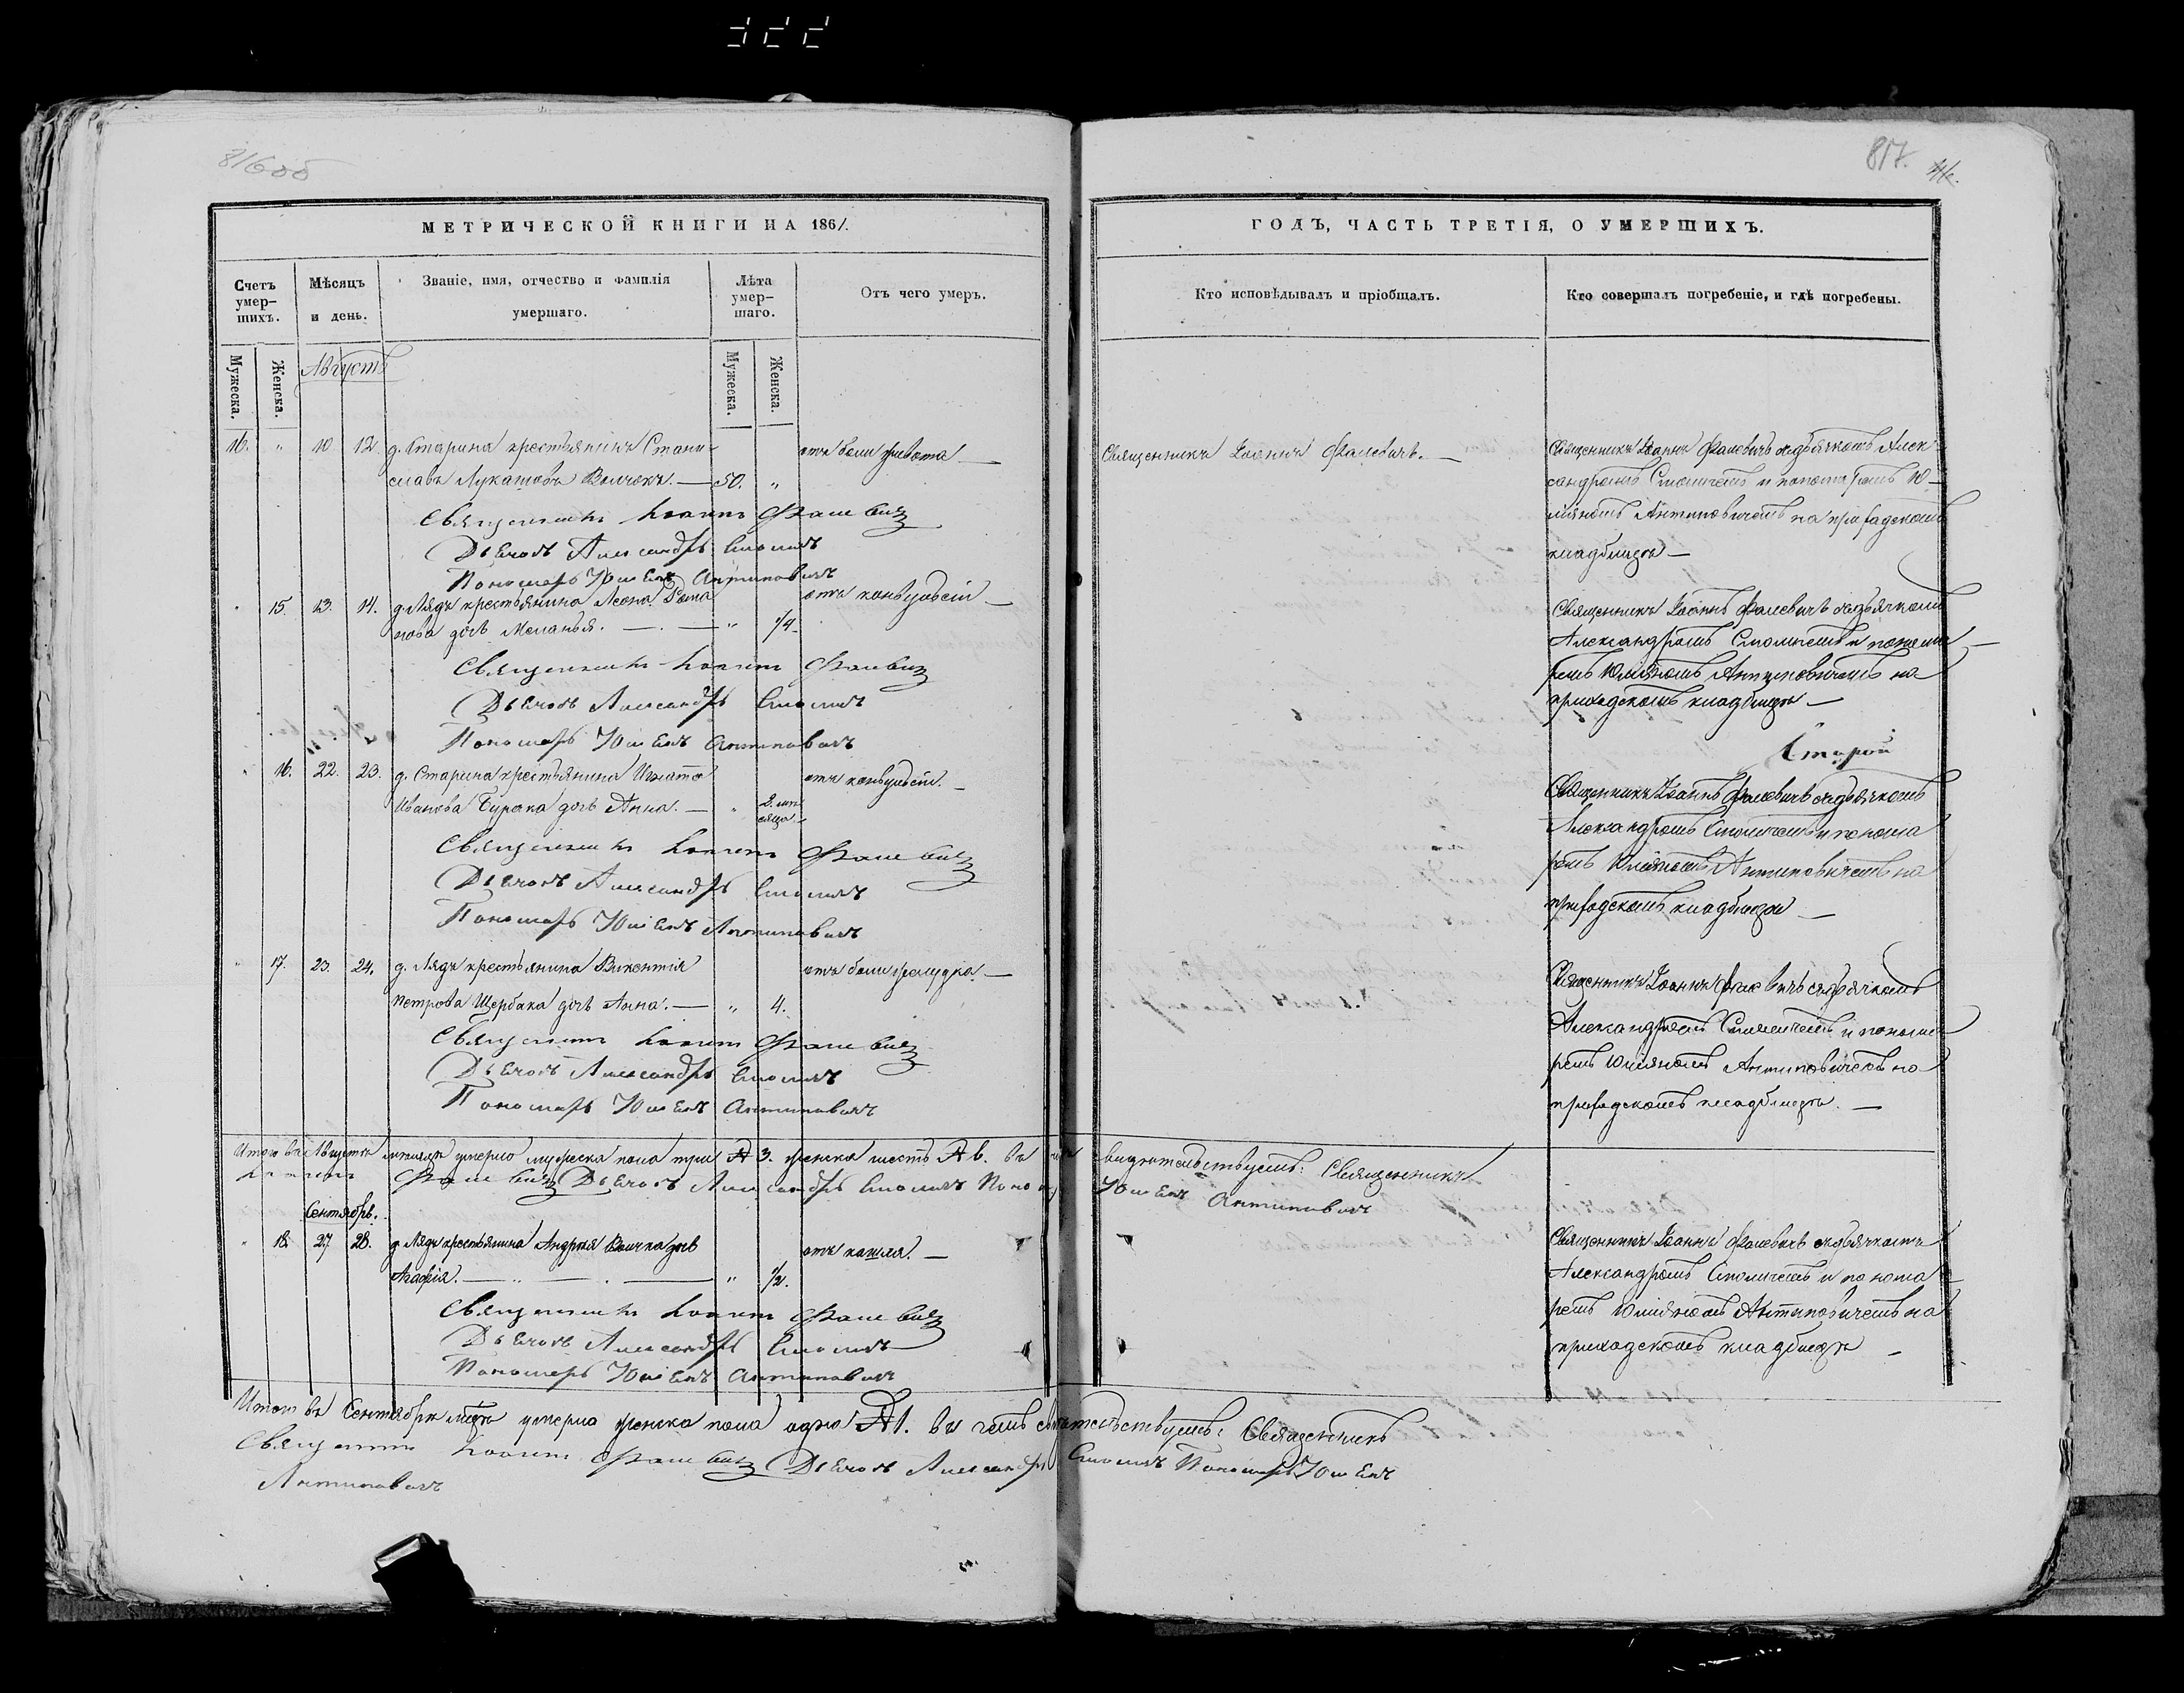 816об
817.
МЕТРИЧЕСКОЙ КНИГИ НА 1861.
ГОДЪ, ЧАСТЬ ТРЕТІЯ, О УМЕРШИХЪ.
Счетъ умер-шихъ.
Мѣсяцъ и день.
Званіе, имя, отчество и фамилія умершаго.
Лѣта умер-шаго.
Отъ чего умеръ.
Кто исповѣдывалъ и пріобщалъ.
Кто совершалъ погребеніе, и гдѣ погребены.
Мужеска. Женска. Августъ Мужеска. Женска.
16. " 10 12 д. Старина крестьянинъ Стани- отъ боли живота — Священникъ Іоаннъ Фалевичъ. — Священникъ Іоаннъ Фалевичъ съ дьячкомъ Алек-
славъ Лукашовъ Волчекъ. — 50. " сандромъ Смоличемъ и пономаремъ Ю-
Священникъ Іоаннъ Фалевичъ ліяномъ Антиповичемъ на приходскомъ
Дьячокъ Александръ Смоличъ кладбищѣ —
Пономарь Юліянъ Антиповичъ
" 15. 13. 14. д. Лядъ крестьянина Леона Рома отъ конвульсіи — Священникъ Іоаннъ Фалевичъ съ дьячкомъ
нова дочь Меланья. — " 1/4. Александромъ Смоличемъ и понома
Священникъ Іоаннъ Фалевичъ ремъ Юліяномъ Антиповичемъ на
Дьячокъ Александръ Смоличъ приходскомъ кладбищѣ —
Пономарь Юліянъ Антиповичъ
" 16. 22. 23. д. Старина крестьянина Игната отъ конвульсіи. — Священникъ Іоаннъ Фалевичъ съ дьячкомъ
Иванова Бурака дочь Анна. — " 2. мѣ сяца. Александромъ Смоличемъ и понома
Священникъ Іоаннъ Фалевичъ ремъ Юліяномъ Антиповичемъ на
Дьячокъ Александръ Смоличъ приходскомъ кладбищѣ —
Пономарь Юліянъ Антиповичъ
" 17. 23. 24. д. Лядъ крестьянина Викентія отъ боли желудка — Священникъ Іоаннъ Фалевичъ съ дьячкомъ
Петрова Щербака дочь Анна. — " 4. Александромъ Смоличемъ и понома
Священникъ Іоаннъ Фалевичъ ремъ Юліяномъ Антиповичемъ на
Дьячокъ Александръ Смоличъ приходскомъ кладбищѣ. —
Пономарь Юліянъ Антиповичъ
Итого въ Августѣ мѣсяцѣ умерло мужеска пола три 3. женска шесть Священникъ
Іоаннъ Фалевичъ Дьячокъ Александръ Смоличъ Юліянъ Антиповичъ
Сентябрь.
" 18. 27 28. д. Лядъ крестьянина Андрея Волчка дочь отъ кашля. — Священникъ Іоаннъ Фалевичъ съ дьячкомъ
Агафія. — " 1/2. Александромъ Смоличемъ и понома
Священникъ Іоаннъ Фалевичъ ремъ Юліяномъ Антиповичемъ на
Дьячокъ Александръ Смоличъ приходскомъ кладбищѣ —
Пономарь Юліянъ Антиповичъ
Итого въ Сентябрѣ мѣсяцѣ умерло женска пола одно 1. въ чемъ свидѣтельствуемъ: Священникъ
Священникъ Іоаннъ Фалевичъ Дьячокъ Александръ Смоличъ Пономарь Юліянъ
Антиповичъ